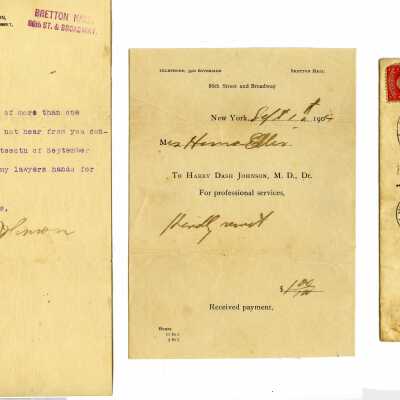 BRETTON HALL,
86TH ST. & BROADWAY.
of more than one
not hear from you con-
teenth of September
my lawyers hands for
Johnson
TELEPHONE, 320 RIVERSIDE BRETTON HALL
86th Street and Broadway
New York, Sept 1st 190
M
To HARRY DASH JOHNSON, M. D., Dr.
For professional services,
Kindly remit
$
Received payment,
Hours